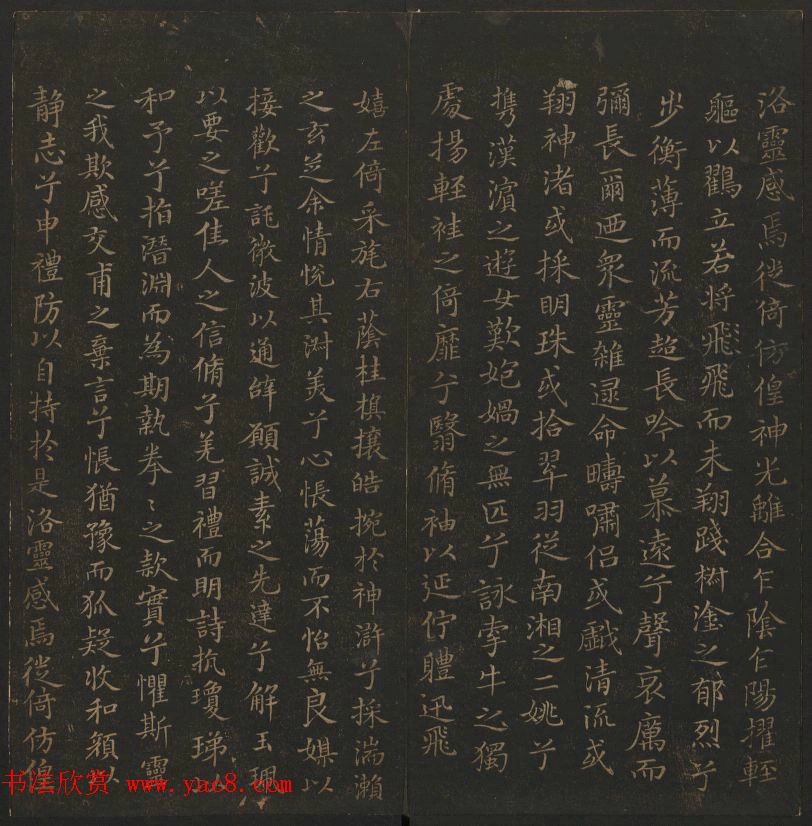 洛靈感焉徙倚仿偟神光離合乍陰乍陽擢輕
軀以鸖立若將飛飛而未翔踐椒塗之郁烈兮
步衡薄而流芳超長吟以慕遠兮聲哀厲而
彌長爾迺衆靈雜遝命疇嘯侣或戲清流或
翔神渚或採明珠或拾翠羽從南湘之二姚兮
攜漢濱之遊女歎炮媧之無匹兮詠牽牛之獨
處揚輕袿之倚靡兮翳脩袖以延佇體迅飛
嬉左倚采旄右蔭桂旗攘皓捥於神滸兮採湍瀨
之玄芝余情悅其淑美兮心悵蕩而不怡無良媒以
接歡兮託微波以通辭願誠素之先達兮解玉珮
以要之嗟佳人之信脩兮羌習禮而明詩抗瓊珶以
和予兮指潛淵而為期執拳〻之款實兮懼斯靈
之我欺感交甫之棄言兮悵猶豫而狐疑收和顏以
静志兮申禮防以自持於是洛靈感焉徙倚仿偟
书法欣赏 www.yac8.com